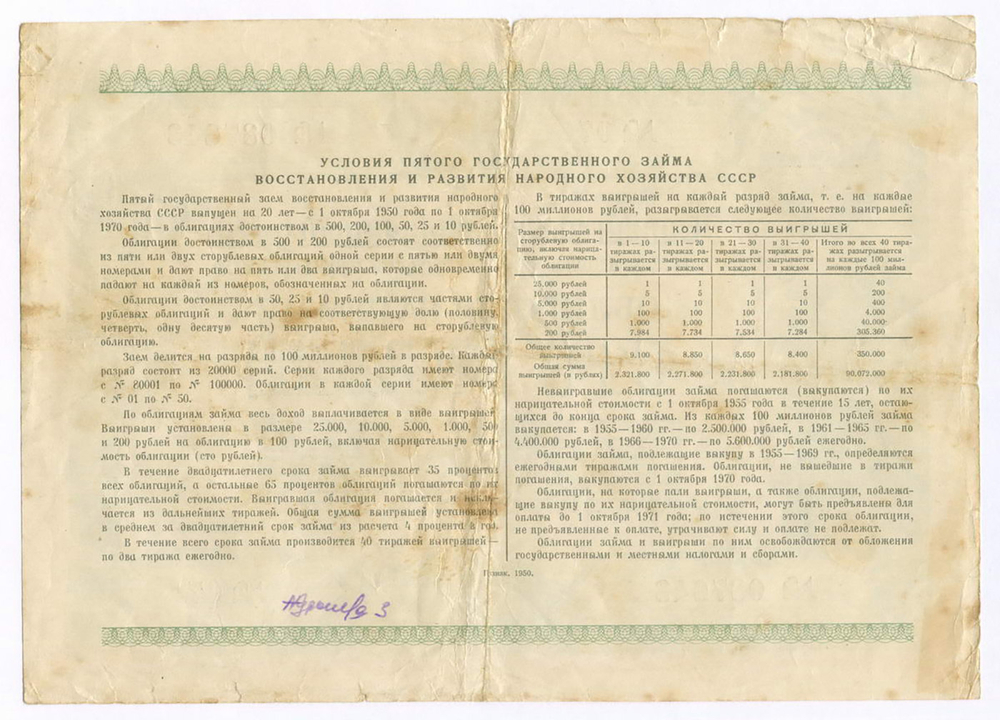 УСЛОВИЯ ПЯТОГО ГОСУДАРСТВЕННОГО ЗАЙМА
ВОССТАНОВЛЕНИЯ И РАЗВИТИЯ НАРОДНОГО ХОЗЯЙСТВА СССР
Пятый государственный заем восстановления и развития народного
хозяйства СССР выпущен на 20 лет—с 1 октября 1950 года по 1 октября
1970 года—в облигациях достоинством в 500, 200, 100, 50, 25 и 10 рублей.
Облигации достоинством в 500 и 200 рублей состоят соответственно
из пяти или двух сторублевых облигаций одной серии с пятью или двумя
номерами и дают право на пять или два выигрыша, которые одновременно
падают на каждый из номеров, обозначенных на облигации.
Облигации достоинством в 50, 25 и 10 рублей являются частями сто-
рублевых облигаций и дают право на соответствующую долю (половину,
четверть, одну десятую часть) выигрыша, выпавшего на сторублевую
облигацию.
Заем делится на разряды по 100 миллионов рублей в разряде. Каждый
разряд состоит из 20000 серий. Серии каждого разряда имеют номера
с № 80001 по № 100000. Облигации в каждой серии имеют номера
с № 01 по № 50.
По облигациям займа весь доход выплачивается в виде выигрышей.
Выигрыши установлены в размере 25.000, 10.000, 5.000, 1.000, 500
и 200 рублей на облигацию в 100 рублей, включая нарицательную стои-
мость облигации (сто рублей).
В течение двадцатилетнего срока займа выигрывает 35 процентов
всех облигаций, а остальные 65 процентов облигаций погашаются по их
нарицательной стоимости. Выигравшая облигация погашается и исклю-
чается из дальнейших тиражей. Общая сумма выигрышей установлена
в среднем за двадцатилетний срок займа из расчета 4 процента в год.
В течение всего срока займа производится 40 тиражей выигрышей—
по два тиража ежегодно.
В тиражах выигрышей на каждый разряд займа, т. е. на каждые
100 миллионов рублей, разыгрывается следующее количество выигрышей:
Размер выигрышей на сторублевую облига-цию, включая нарица-тельную стоимость облигации
КОЛИЧЕСТВО ВЫИГРЫШЕЙ
в 1—10 тиражах ра-зыгрывается в каждом
в 11—20 тиражах ра-зыгрывается в каждом
в 21—30 тиражах ра-зыгрывается в каждом
в 31—40 тиражах ра-зыгрывается в каждом
Итого во всех 40 тира-жах разыгрывается на каждые 100 мил-лионов рублей займа
25.000 рублей 1 1 1 1 40
10.000 рублей 5 5 5 5 200
5.000 рублей 10 10 10 10 400
1.000 рублей 100 100 100 100 4.000
500 рублей 1.000 1.000 1.000 1.000 40.000
200 рублей 7.984 7.734 7.534 7.284 305.360
Общее количество выигрышей 9.100 8.850 8.650 8.400 350.000
Общая сумма выигрышей (в рублях) 2.321.800 2.271.800 2.231.800 2.181.800 90.072.000
Невыигравшие облигации займа погашаются (выкупаются) по их
нарицательной стоимости с 1 октября 1955 года в течение 15 лет, остаю-
щихся до конца срока займа. Из каждых 100 миллионов рублей займа
выкупается: в 1955—1960 гг.—по 2.500.000 рублей, в 1961—1965 гг.—по
4.400.000 рублей, в 1966—1970 гг.—по 5.600.000 рублей ежегодно.
Облигации займа, подлежащие выкупу в 1955—1969 гг., определяются
ежегодными тиражами погашения. Облигации, не вышедшие в тиражи
погашения, выкупаются с 1 октября 1970 года.
Облигации, на которые пали выигрыши, а также облигации, подлежа-
щие выкупу по их нарицательной стоимости, могут быть предъявлены для
оплаты до 1 октября 1971 года; по истечении этого срока облигации,
не предъявленные к оплате, утрачивают силу и оплате не подлежат.
Облигации займа и выигрыши по ним освобождаются от обложения
государственными и местными налогами и сборами.
Гознак. 1950.